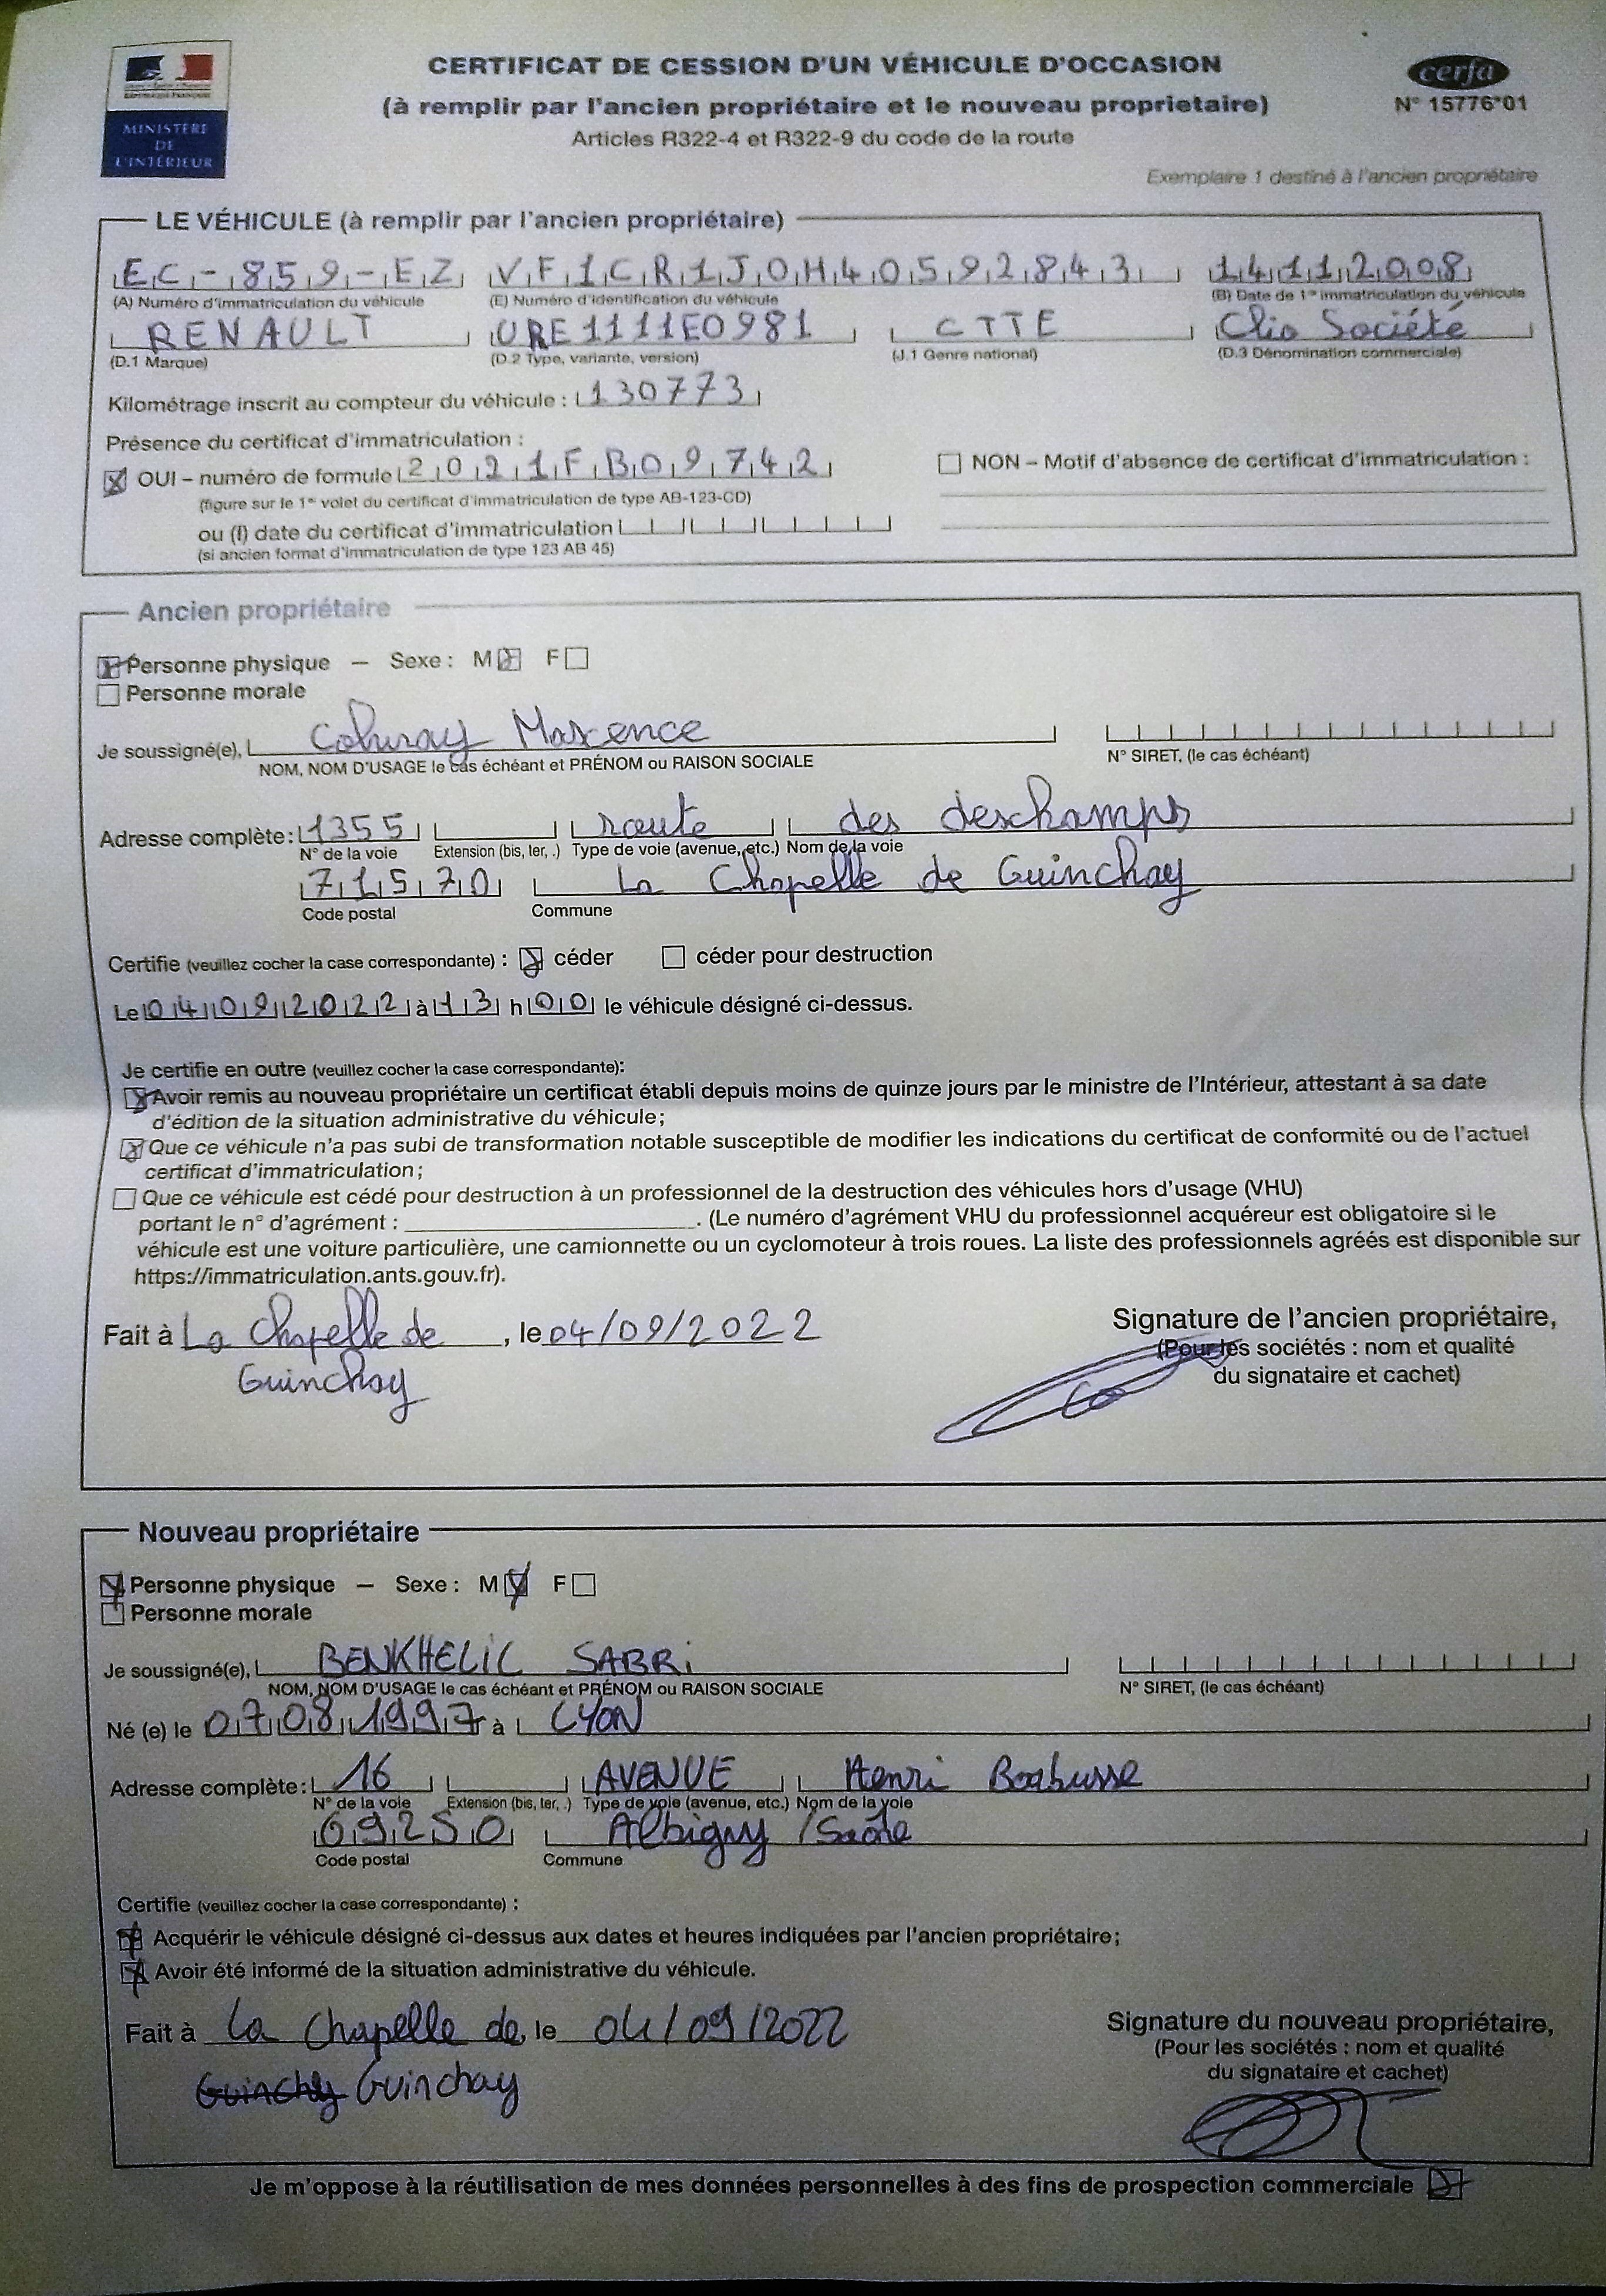 CERTIFICAT DE CESSION D'UN VÉHICULE D'OCCASION
(à remplir par l'ancien propriétaire et le nouveau proprietaire)
Articles R322-4 et R322-9 du code de la route
cerfa
N° 15776*01
RÉPUBLIQUE FRANÇAISE
MINISTÈRE
DE
L'INTÉRIEUR
Exemplaire 1 destiné à l'ancien propriétaire
LE VÉHICULE (à remplir par l'ancien propriétaire)
EC-859-EZ VF1CR1J0H40592843 14112008
(A) Numéro d'immatriculation du véhicule (E) Numéro d'identification du véhicule (B) Date de 1re immatriculation du véhicule
RENAULT URE1111E0981 CTTE Clio Société
(D.1 Marque) (D.2 Type, variante, version) (J.1 Genre national) (D.3 Dénomination commerciale)
Kilométrage inscrit au compteur du véhicule : 130773
Présence du certificat d'immatriculation :
OUI – numéro de formule 2021FB09742 NON – Motif d'absence de certificat d'immatriculation :
(figure sur le 1er volet du certificat d'immatriculation de type AB-123-CD)
ou (I) date du certificat d'immatriculation
(si ancien format d'immatriculation de type 123 AB 45)
Ancien propriétaire
Personne physique – Sexe : M F
Personne morale
Je soussigné(e), Maxence
NOM, NOM D'USAGE le cas échéant et PRÉNOM ou RAISON SOCIALE N° SIRET, (le cas échéant)
Adresse complète : 1355 route des deschamps
N° de la voie Extension (bis, ter, .) Type de voie (avenue, etc.) Nom de la voie
71570 La Chapelle de Guinchay
Code postal Commune
Certifie (veuillez cocher la case correspondante) : céder céder pour destruction
Le 04092022 à 13 h 00 le véhicule désigné ci-dessus.
Je certifie en outre (veuillez cocher la case correspondante):
Avoir remis au nouveau propriétaire un certificat établi depuis moins de quinze jours par le ministre de l'Intérieur, attestant à sa date
d'édition de la situation administrative du véhicule;
Que ce véhicule n'a pas subi de transformation notable susceptible de modifier les indications du certificat de conformité ou de l'actuel
certificat d'immatriculation;
Que ce véhicule est cédé pour destruction à un professionnel de la destruction des véhicules hors d'usage (VHU)
portant le n° d'agrément : . (Le numéro d'agrément VHU du professionnel acquéreur est obligatoire si le
véhicule est une voiture particulière, une camionnette ou un cyclomoteur à trois roues. La liste des professionnels agréés est disponible sur
https://immatriculation.ants.gouv.fr).
Fait à La Chapelle de , le 04/09/2022
Guinchay
Signature de l'ancien propriétaire,
(Pour les sociétés : nom et qualité
du signataire et cachet)
Nouveau propriétaire
Personne physique – Sexe : M F
Personne morale
Je soussigné(e), BENKHELIL SABRI
NOM, NOM D'USAGE le cas échéant et PRÉNOM ou RAISON SOCIALE N° SIRET, (le cas échéant)
Né (e) le 07081997 à LYON
Adresse complète : 16 AVENUE Henri Barbusse
N° de la voie Extension (bis, ter, .) Type de voie (avenue, etc.) Nom de la voie
69250 Albigny /Saône
Code postal Commune
Certifie (veuillez cocher la case correspondante) :
Acquérir le véhicule désigné ci-dessus aux dates et heures indiquées par l'ancien propriétaire;
Avoir été informé de la situation administrative du véhicule.
Fait à La Chapelle de, le 04/09/2022
Guinchy Guinchay
Signature du nouveau propriétaire,
(Pour les sociétés : nom et qualité
du signataire et cachet)
Je m'oppose à la réutilisation de mes données personnelles à des fins de prospection commerciale